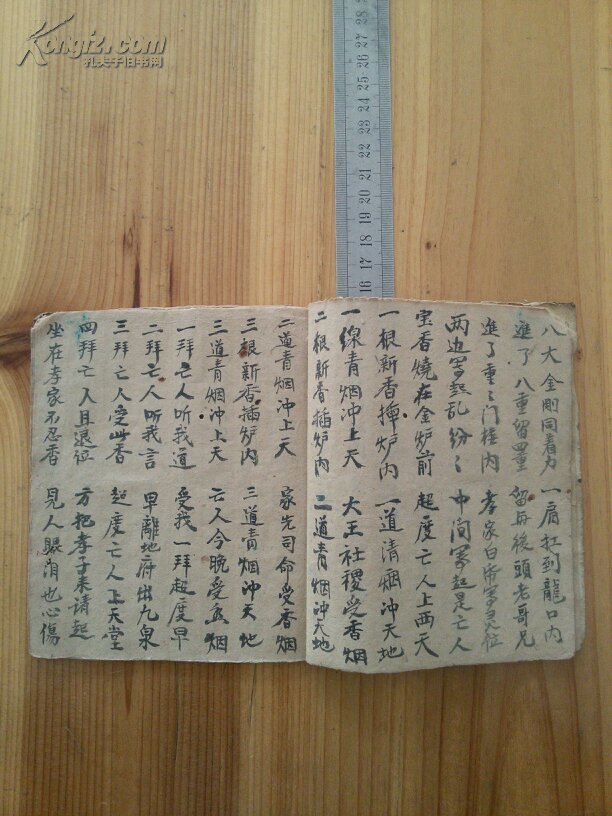 Kongfz.com
孔夫子旧书网
28
27
26
25
24
23
22
21
20
19
18
17
16
八大金剛同着力 一肩扛到龍口内
進了八重留四重 留在後頭老哥兄
進了重々门楼内 孝家白布写灵位
两边写起乱纷々 中间写起是亡人
宝香燒在金炉前 超度亡人上西天
一根新香捙炉内 一道清烟沖天地
一線青烟沖上天 大王社稷受香烟
二根新香插炉内 二道青烟沖天地
二道青烟沖上天 家先司命受香烟
三根新香插炉内 三道青烟沖天地
三道青烟沖上天 亡人今晚受香烟
一拜亡人听我道 受我一拜超度早
二拜亡人听我言 早離地府出九泉
三拜亡人受此香 超度亡人上天堂
四拜亡人且退位 方把孝子来请起
坐在孝家不忍看 見人眼泪也心傷